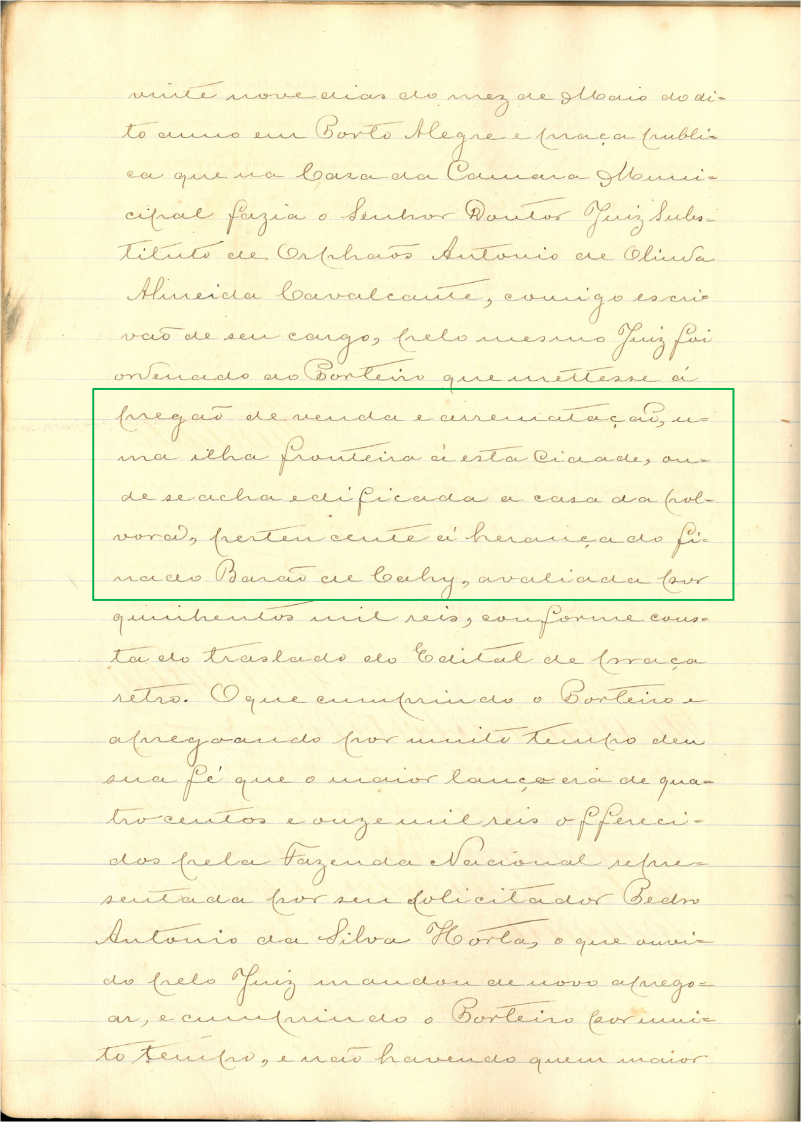 vinte nove dias do mez de Maio do di=
to anno em Porto Alegre e praça publi=
ca que na Casa da Camara Muni=
cipal fazia o Senhor Doutor Juiz Subs=
tituto de Orphaõs Antonio de Olinda
Almeida Cavalcante, comigo escri=
vaõ de seu cargo, pelo mesmo Juiz foi
ordenado ao Porteiro que mettesse á
pregaõ de venda e arremataçaõ, u=
ma ilha fronteira á esta Cidade, on=
de se acha edificada a casa da pol=
vora, pertencente á herança do fi=
nado Baraõ de Cahy, avaliada por
quinhentos mil reis, conforme cons=
ta do traslado do Edital de praça
retro. O que cumprindo o Porteiro e
apregoando por muito tempo deu
sua fé que o maior lanço era de qua=
trocentos e onze mil reis offereci=
dos pela Fazenda Nacional repre=
sentada por seu solicitador Pedro
Antonio da Silva Horta, o que ouvi=
do pelo Juiz mandou de novo aprego=
ar, e cumprindo o Porteiro por mui=
to tempo, e naõ havendo quem maior